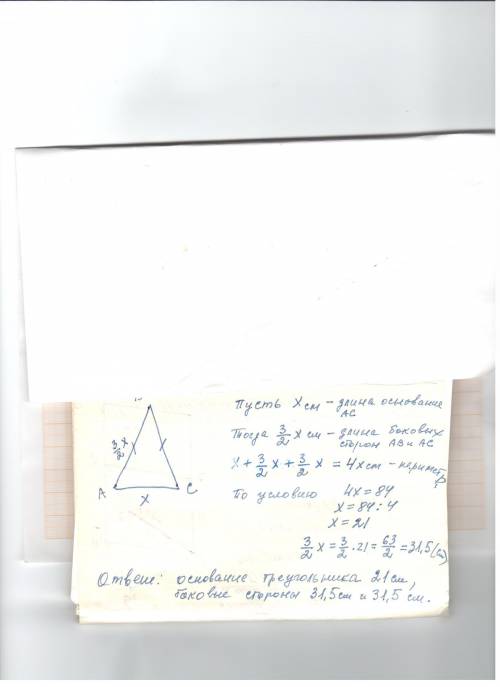 3/2 x
A
x
C
Пусть x см – длина основание
AC
Тогда 3/2 x см – длина боковых
сторон AB и AC
x + 3/2 x + 3/2 x = 4x см –
По условию 4x = 84
x = 84 : 4
x = 21
3/2 x = 3/2 · 21 = 63/2 = 31,5 (см)
Ответ: основание треугольника 21 см,
боковые стороны 31,5 см и 31,5 см.